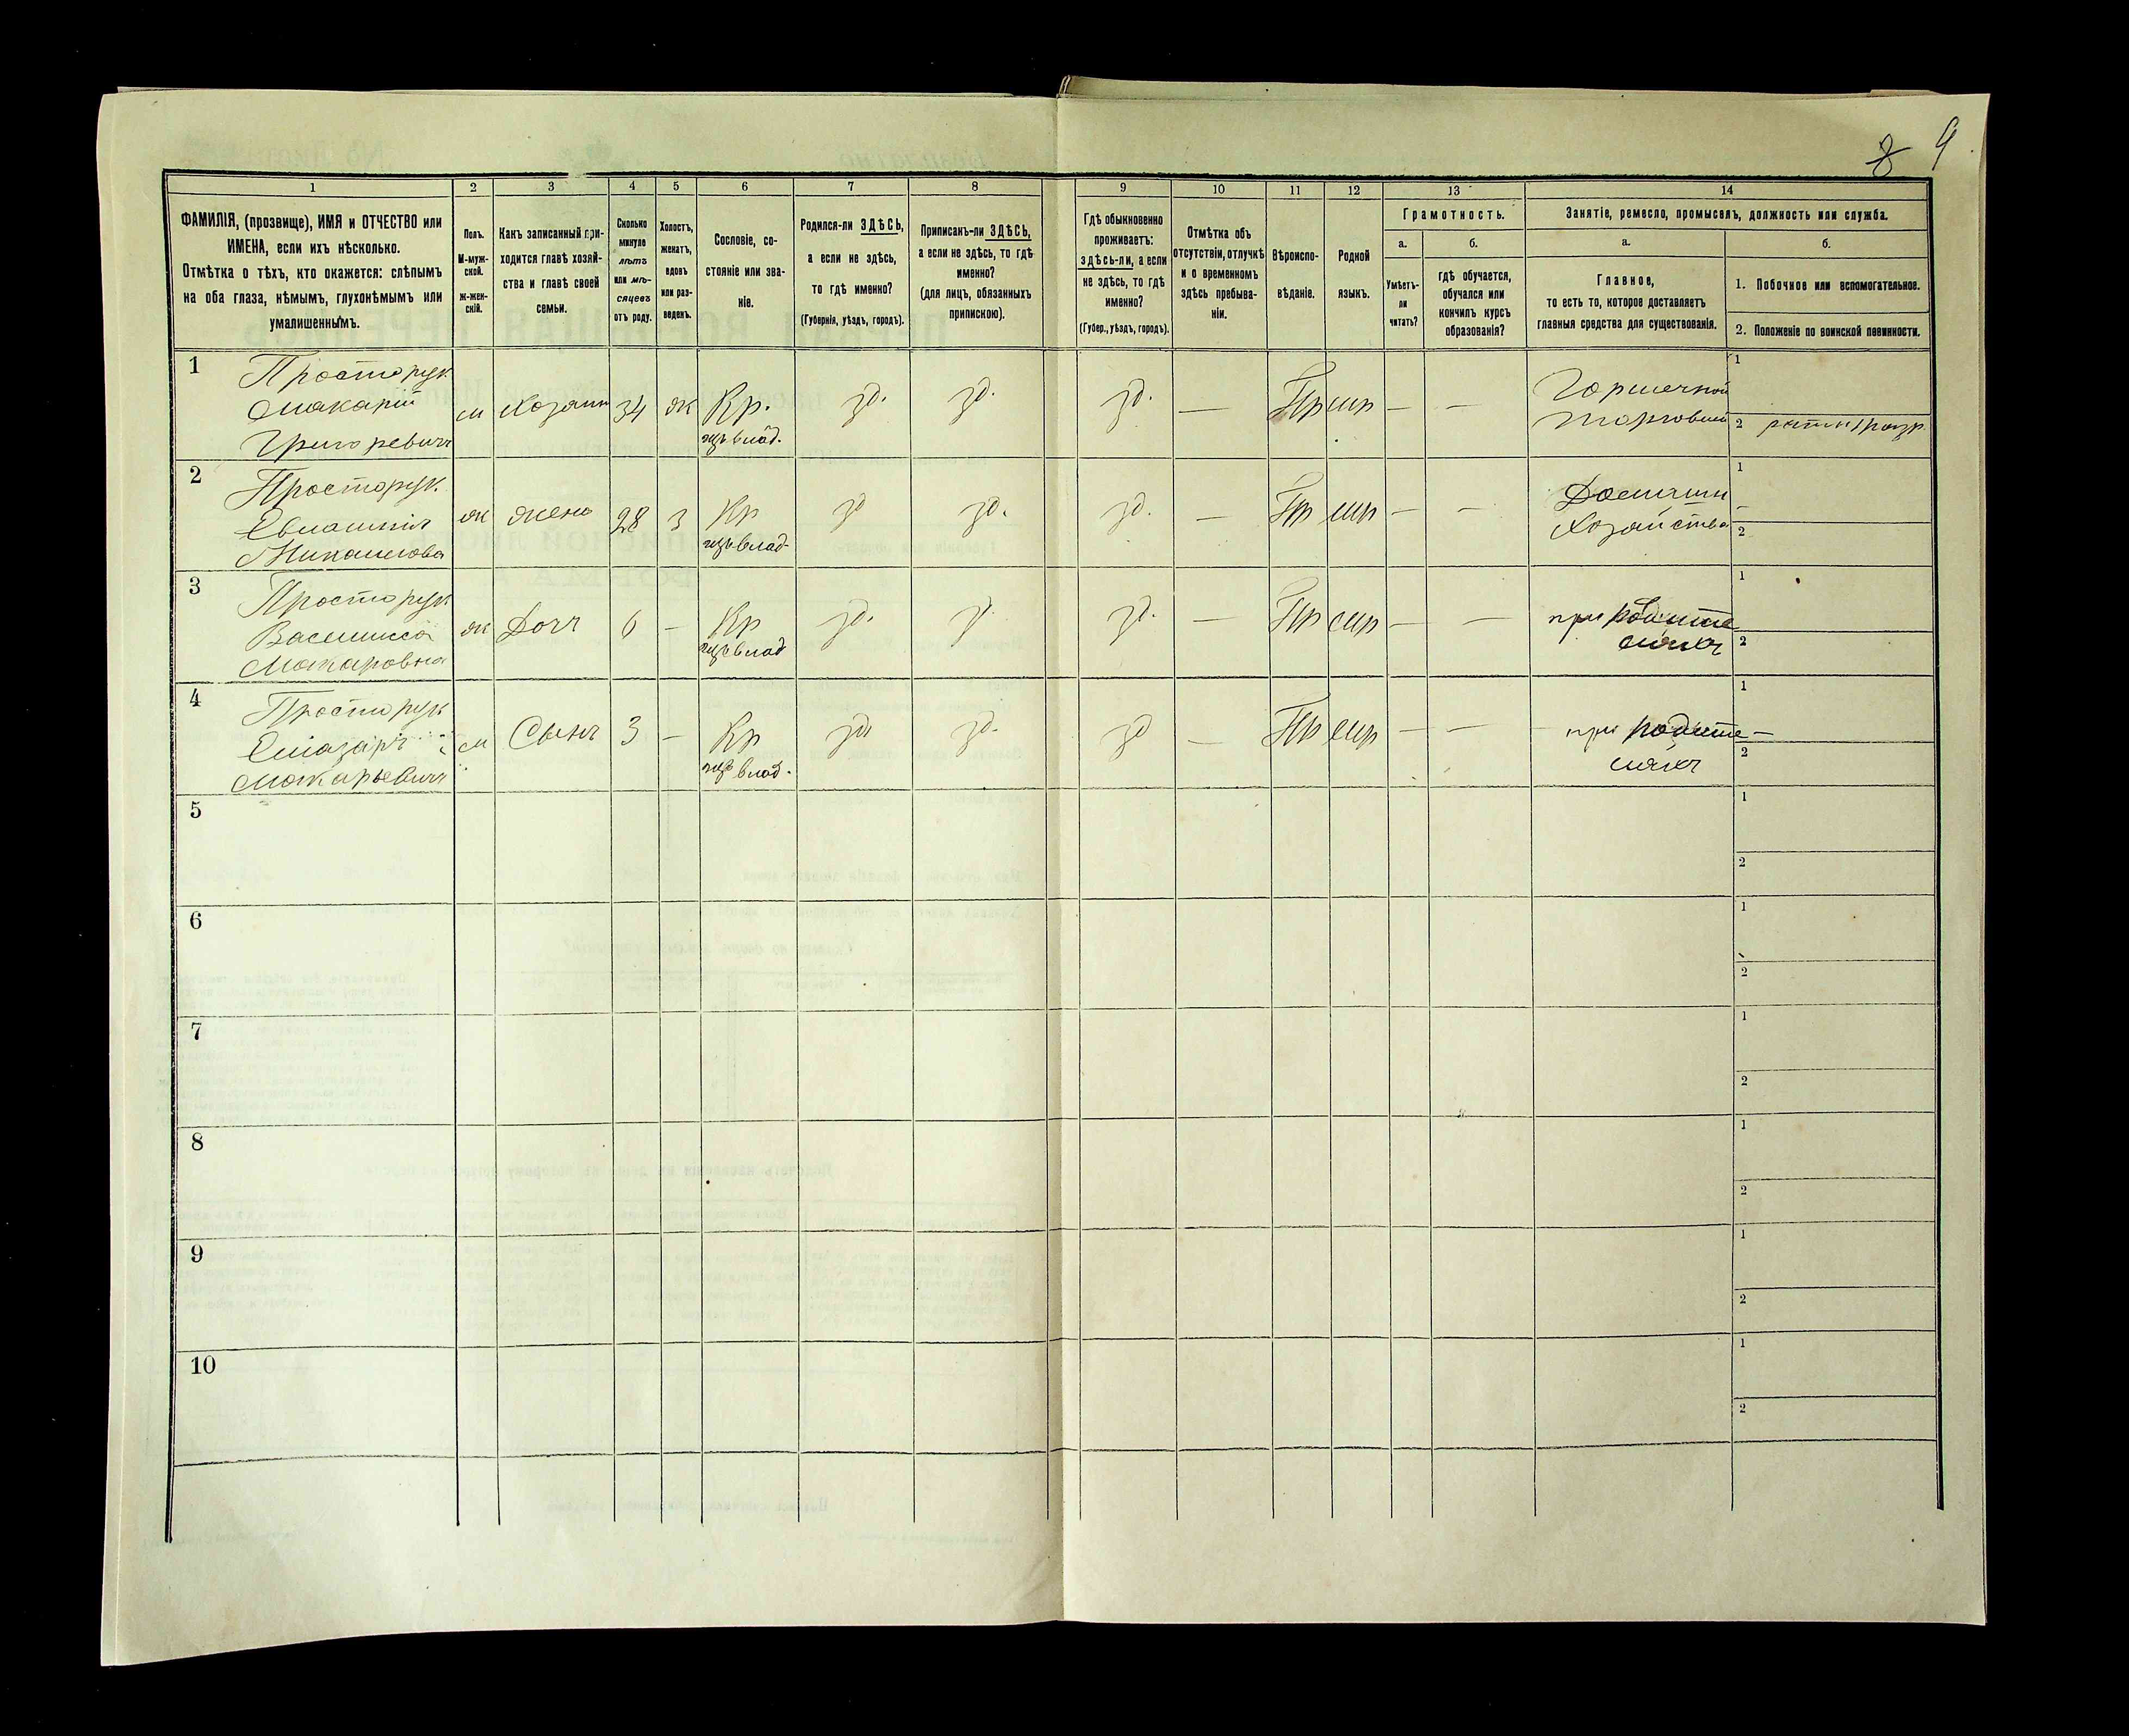 8 9
1 2 3 4 5 6 7 8 9 10 11 12 13 14
ФАМИЛІЯ, (прозвище), ИМЯ и ОТЧЕСТВО или
ИМЕНА, если ихъ нѣсколько.
Отмѣтка о тѣхъ, кто окажется: слѣпымъ
на оба глаза, нѣмымъ, глухонѣмымъ или
умалишеннымъ.
Полъ.
М-муж-
ской.
ж-жен-
скій.
Какъ записанный при-
ходится главѣ хозяй-
ства и главѣ своей
семьи.
Сколько
минуло
лѣтъ
или мѣ-
сяцевъ
отъ роду.
Холостъ,
женатъ,
вдовъ
или раз-
веденъ.
Сословіе, со-
стояніе или зва-
ніе.
Родился-ли ЗДѢСЬ,
а если не здѣсь,
то гдѣ именно?
(Губернія, уѣздъ, городъ).
Приписанъ-ли ЗДѢСЬ,
а если не здѣсь, то гдѣ
именно?
(для лицъ, обязанныхъ
припискою).
Гдѣ обыкновенно
проживаетъ:
здѣсь-ли, а если
не здѣсь, то гдѣ
именно?
(Губер., уѣздъ, городъ).
Отмѣтка объ
отсутствіи, отлучкѣ
и о временномъ
здѣсь пребыва-
ніи.
Вѣроиспо-
вѣданіе.
Родной
языкъ.
Грамотность.
а.
Умѣетъ-
ли
читать?
б.
гдѣ обучается,
обучался или
кончилъ курсъ
образованія?
Занятіе, ремесло, промыселъ, должность или служба.
а.
Главное,
то есть то, которое доставляетъ
главныя средства для существованія.
б.
1. Побочное или вспомогательное.
2. Положеніе по воинской повинности.
1 Просторук
Макарій
Григоревичъ
м Хозяин 34 ж Кр.
влад.
зд. зд. зд. — Пр мр — —
Горшечной
торговли
1
2
2 Просторук.
ж жена 28 з Кр
влад.
зд зд. зд. — Пр мр — —
Домашн
Хозяйства
1
2
3 Просторук
Василиса
Макаровна
ж Дочъ 6 — Кр
влад
зд. зд. зд. — Пр мр — —
при родите
ляхъ
1
2
4 Просторук
Макарьевичъ
м Сынъ 3 — Кр
влад.
зд зд. зд — Пр мр — —
при родите—
ляхъ
1
2
5 1
2
6 1
2
7 1
2
8 1
2
9 1
2
10 1
2